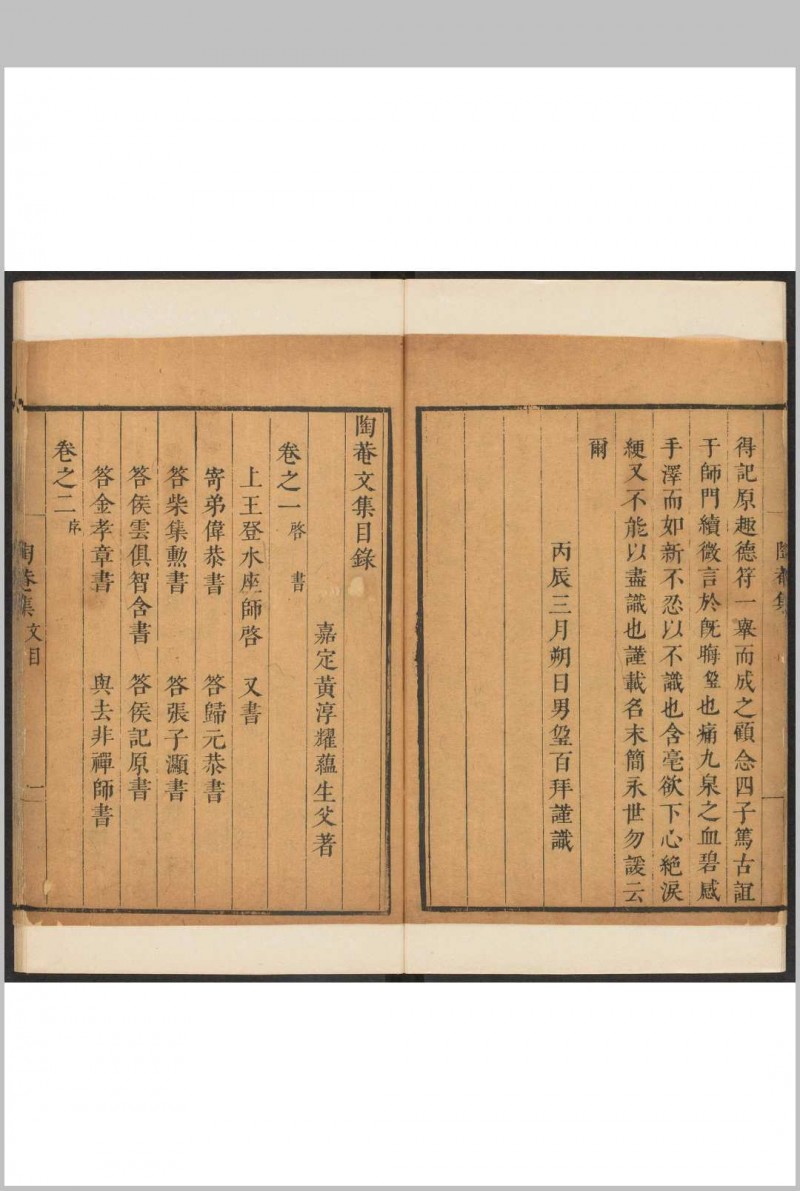 得記原趣德符一舉而成之顧念四子篤古誼
于師門續微言於旣晦瑿也痛九泉之血碧感
手澤而如新不忍以不識也含毫欲下心絶淚
綆又不能以盡識也謹載名末簡永世勿諼云
爾
丙辰三月朔日男瑿百拜謹識
陶菴集
陶菴文集目錄
嘉定黃淳耀蘊生父著
卷之一 啓 書
上王登水座師啓 又書
寄弟偉恭書 答歸元恭書
答柴集勳書 答張子灝書
答侯雲俱智含書 答侯記原書
答金孝章書 與去非禪師書
卷之二 序
陶菴集 文目 一